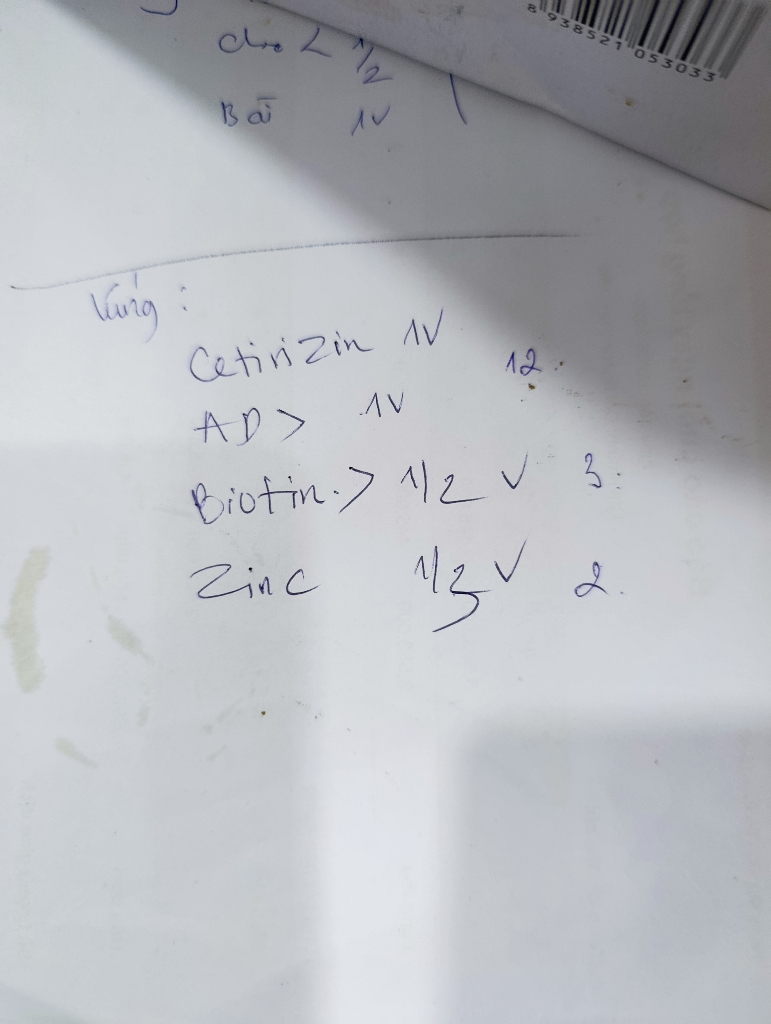 8 938521 053033
1/2
Bôi 1V
Váng :
Cetirizin 1V 12.
AD > 1V
Biotin. > 1/2 V 3.
Zinc 1/2 V 2.